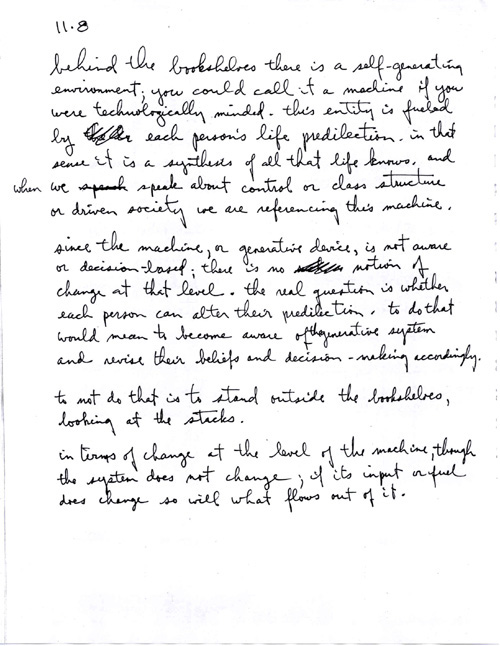 11.8
behind the bookshelves there is a self-generating
environment; you could call it a machine if you
were technologically minded. this entity is fueled
by each person's life predilection. in that
sense it is a synthesis of all that life knows. and
when we speak about control or class structure
or driven society we are referencing this machine.
since the machine, or generative device, is not aware
or decision-based; there is no notion of
change at that level. the real question is whether
each person can alter their predilection. to do that
would mean to become aware of the generative system
and revise their beliefs and decision-making accordingly.
to not do that is to stand outside the bookshelves,
looking at the stacks.
in terms of change at the level of the machine, though
the system does not change; if its input or fuel
does change so will what flows out of it.